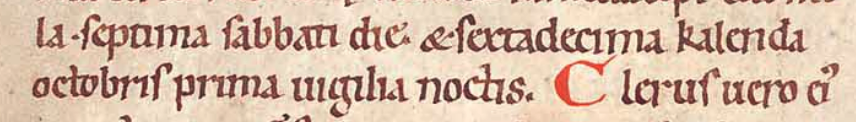 la·septima sabbati die. &sextadecima kalenda
octobris prima uigilia noctis. Clerus uero ei᾿